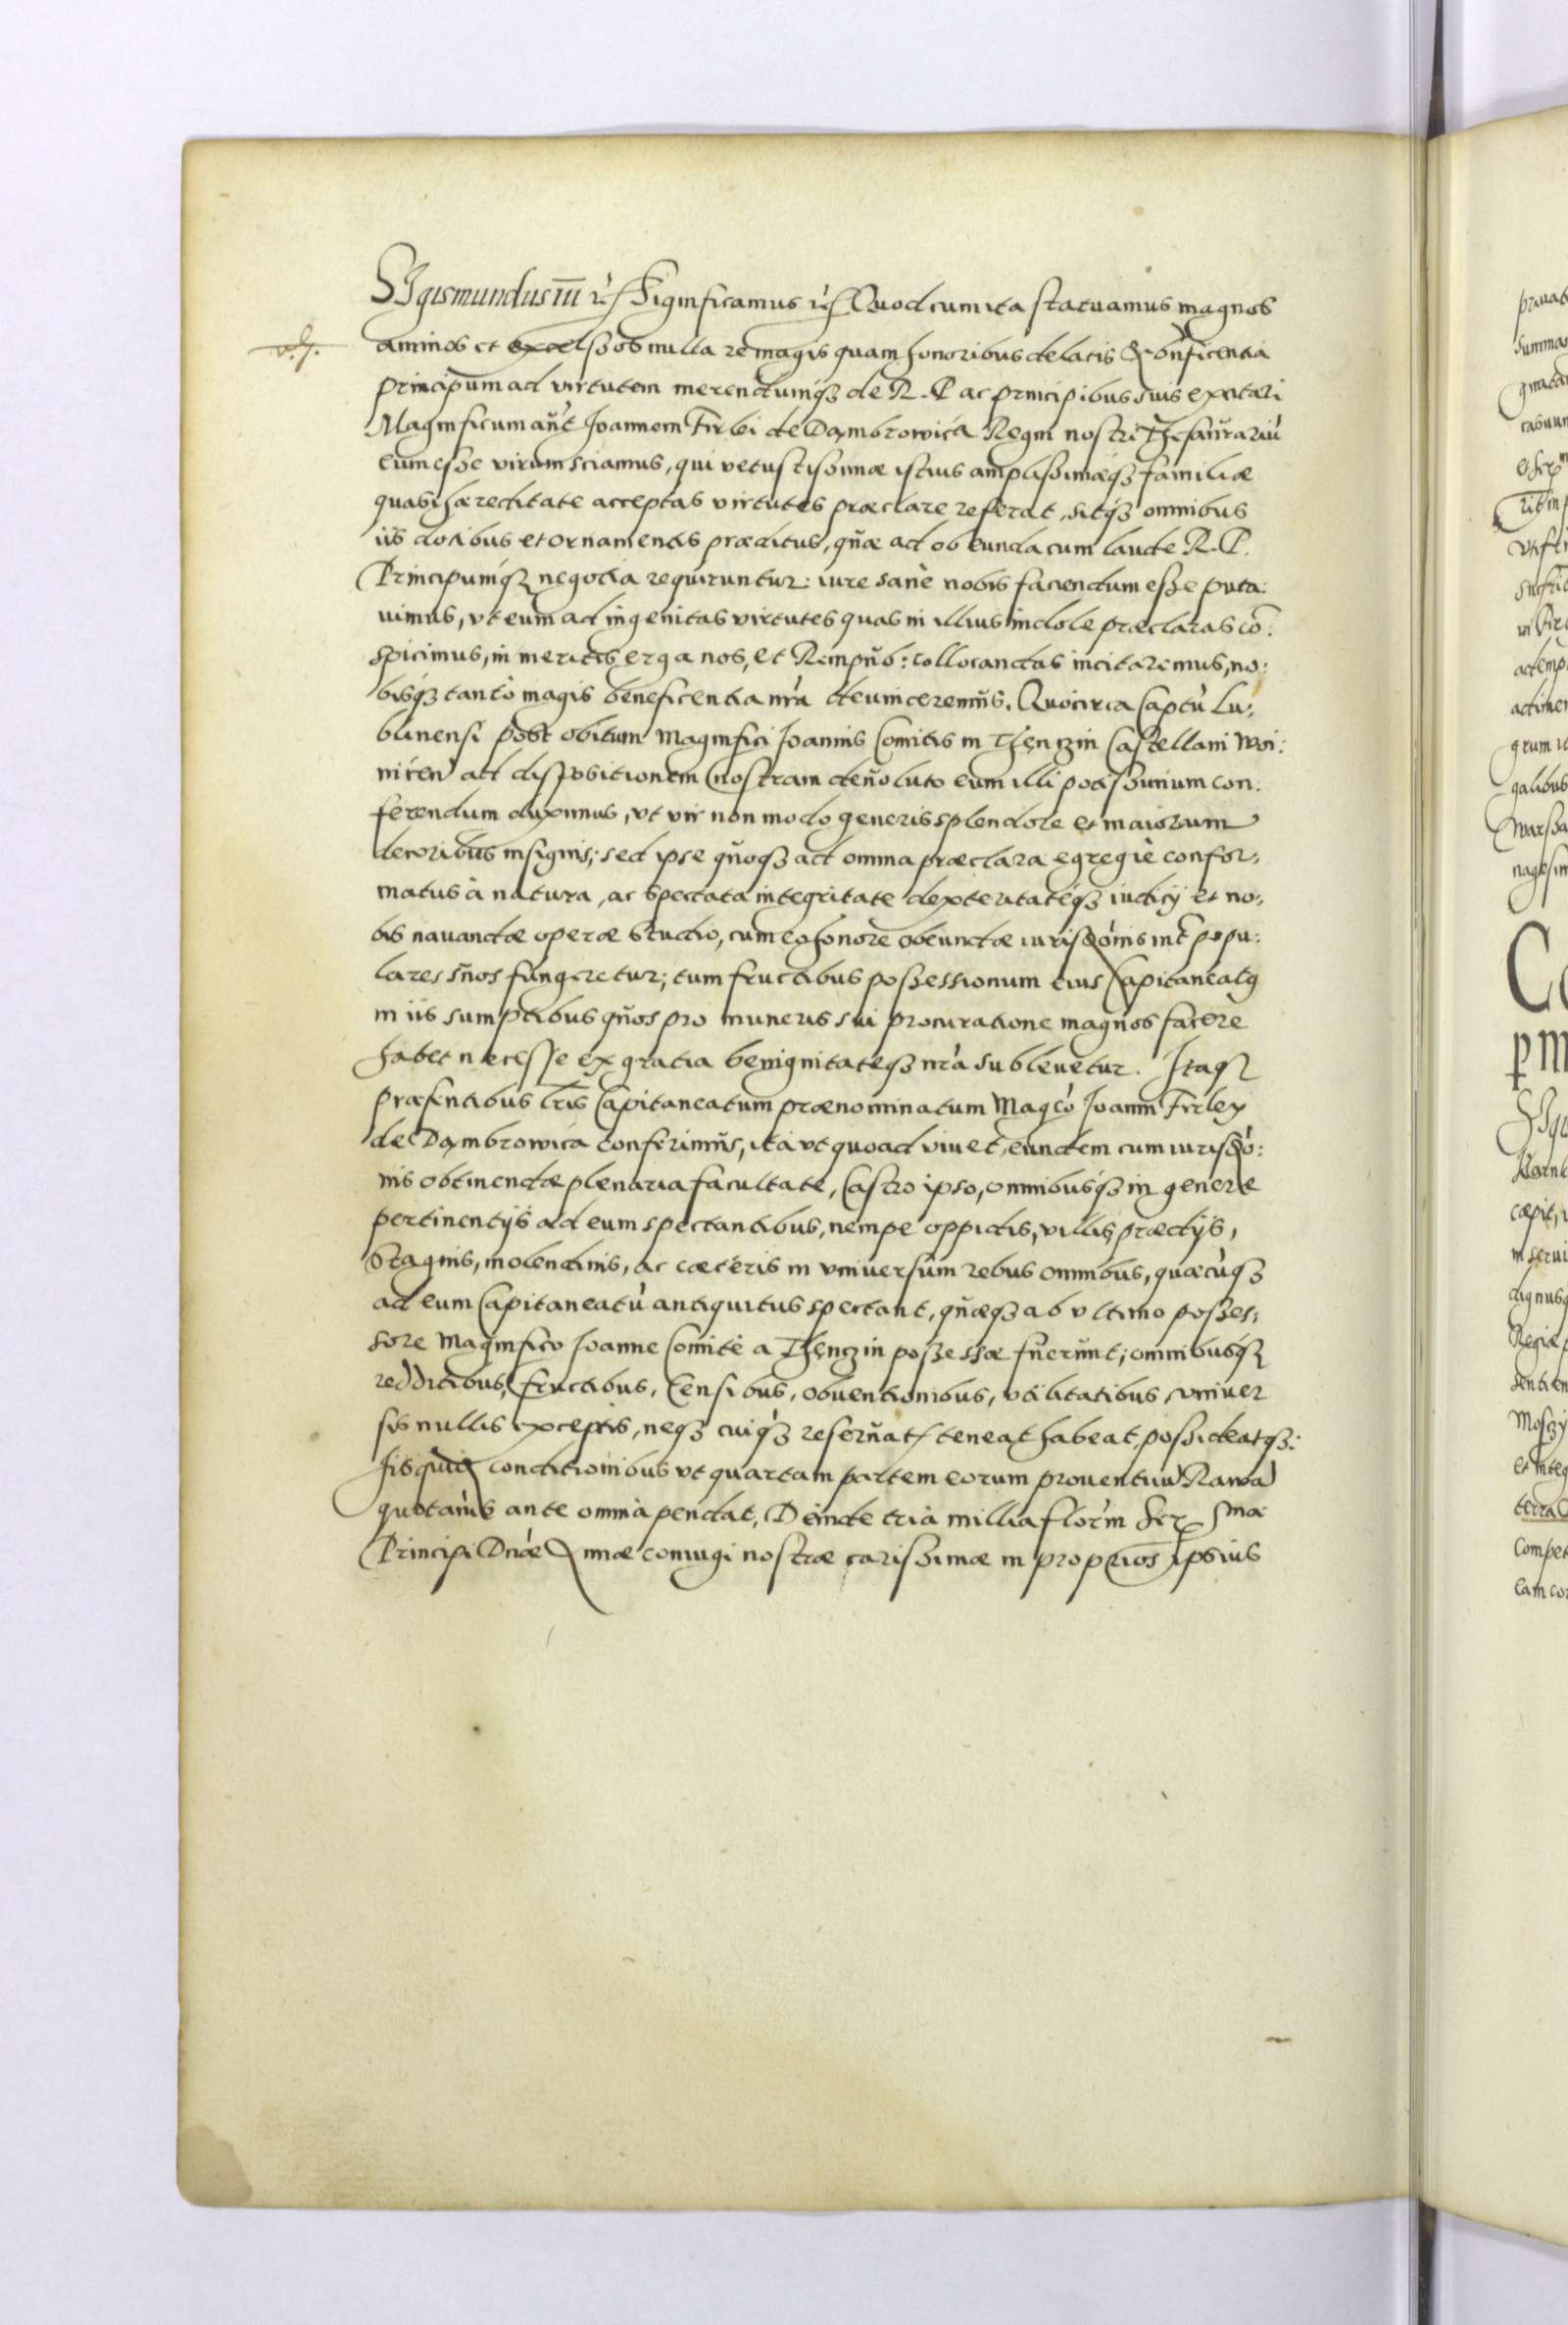 Sigismundus III etc. Significamus etc. Quod cum ita statuamus magnos
animos et excelsos nulla re magis quam honoribus delatis et bnficentia
principum ad virtutem merendumq3 de R. P. ac principibus suis excitari
Magnificum añt Joannem Firlei de Dąmbrowica Regni nostri Thesaurariu
eum esse virum sciamus, qui vetustissimæ istius amplissimæq3 familiæ
quasi hæreditate acceptas virtutes præclare referat, sitq3 omnibus
iis dotibus et ornamentis præditus, quæ ad obeunda cum laude R. P.
Principumq3 negotia requiruntur: iure sanè nobis faciendum esse puta:
uimus, vt eum ad ingenitas virtutes quas in illius indole præclaras co:
spicimus, in meritis erga nos, et Rempub: collocandas incitaremus, no:
bisq3 tantò magis beneficentia nra deuinceremus. Quocirca Captu Lu:
blinensi post obitum Magnifici Joannis Comitis in Thenczin Castellani Woi:
nicen ad dispositionem nostram deuoluto eum illi potissimum con:
ferendum duximus, vt vir non modo generis splendore et maiorum
decoribus insignis; sed ipse quoq3 ad omnia præclara egregiè confor:
matus à natura, ac spectata integritate dexteritateq3 iudicij et no:
bis nauandæ operæ studio, cum eo honore obeundæ iurisdōnis int popu:
lares suos fungeretur; tum fructibus possessionum eius Capitaneatq
in iis sumptibus quos pro muneris sui procuratione magnos facere
habet necesse ex gratia benignitateq3 nra subleuetur. Itaq3
præsentibus lris Capitaneatum prænominatum Magco Joanni Firley
de Dąmbrowica conferimus, ita vt quoad viuet, eundem cum iurisdō:
nis obtinendæ plenaria facultate, Castro ipso, omnibusq3 in genere
pertinentijs ad eum spectantibus, nempe oppidis, villis, prædijs,
Stagnis, molendinis, ac cæteris in vniuersum rebus omnibus, quæcuq3
ad eum Capitaneatu antiquitus spectant, quæq3 ab vltimo posses:
sore Magnifico Joanne Comite a Thenczin possessæ fuerunt; omnibusq3
redditibus, fructibus, Censibus, obuentionibus, vtilitatibus, vniuer
sis nullis exceptis, neq3 cuiq3 reseruat, teneat habeat, possideatq3:
hisque conditionibus vt quartam partem eorum prouentuu Rawa
quotanis ante omnia pendat, Deinde tria millia florm Ser sma
Principi Dnæ nnæ coniugi nostræ carissimæ in proprios ipsius